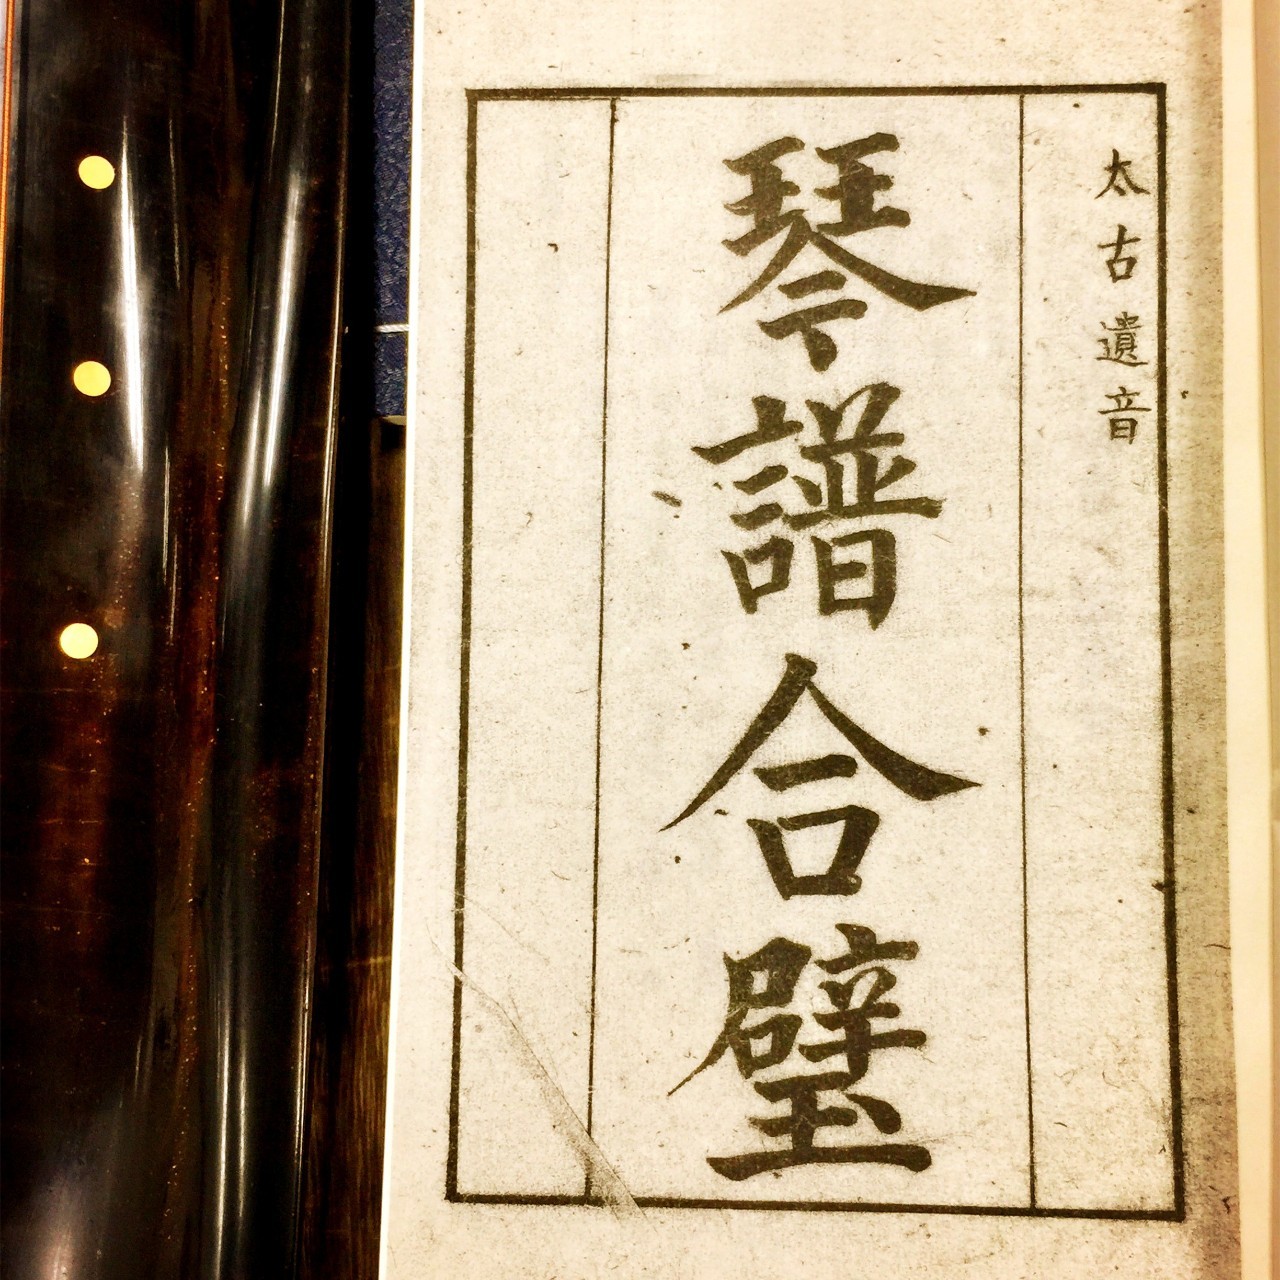 太古遺音
琴譜合璧